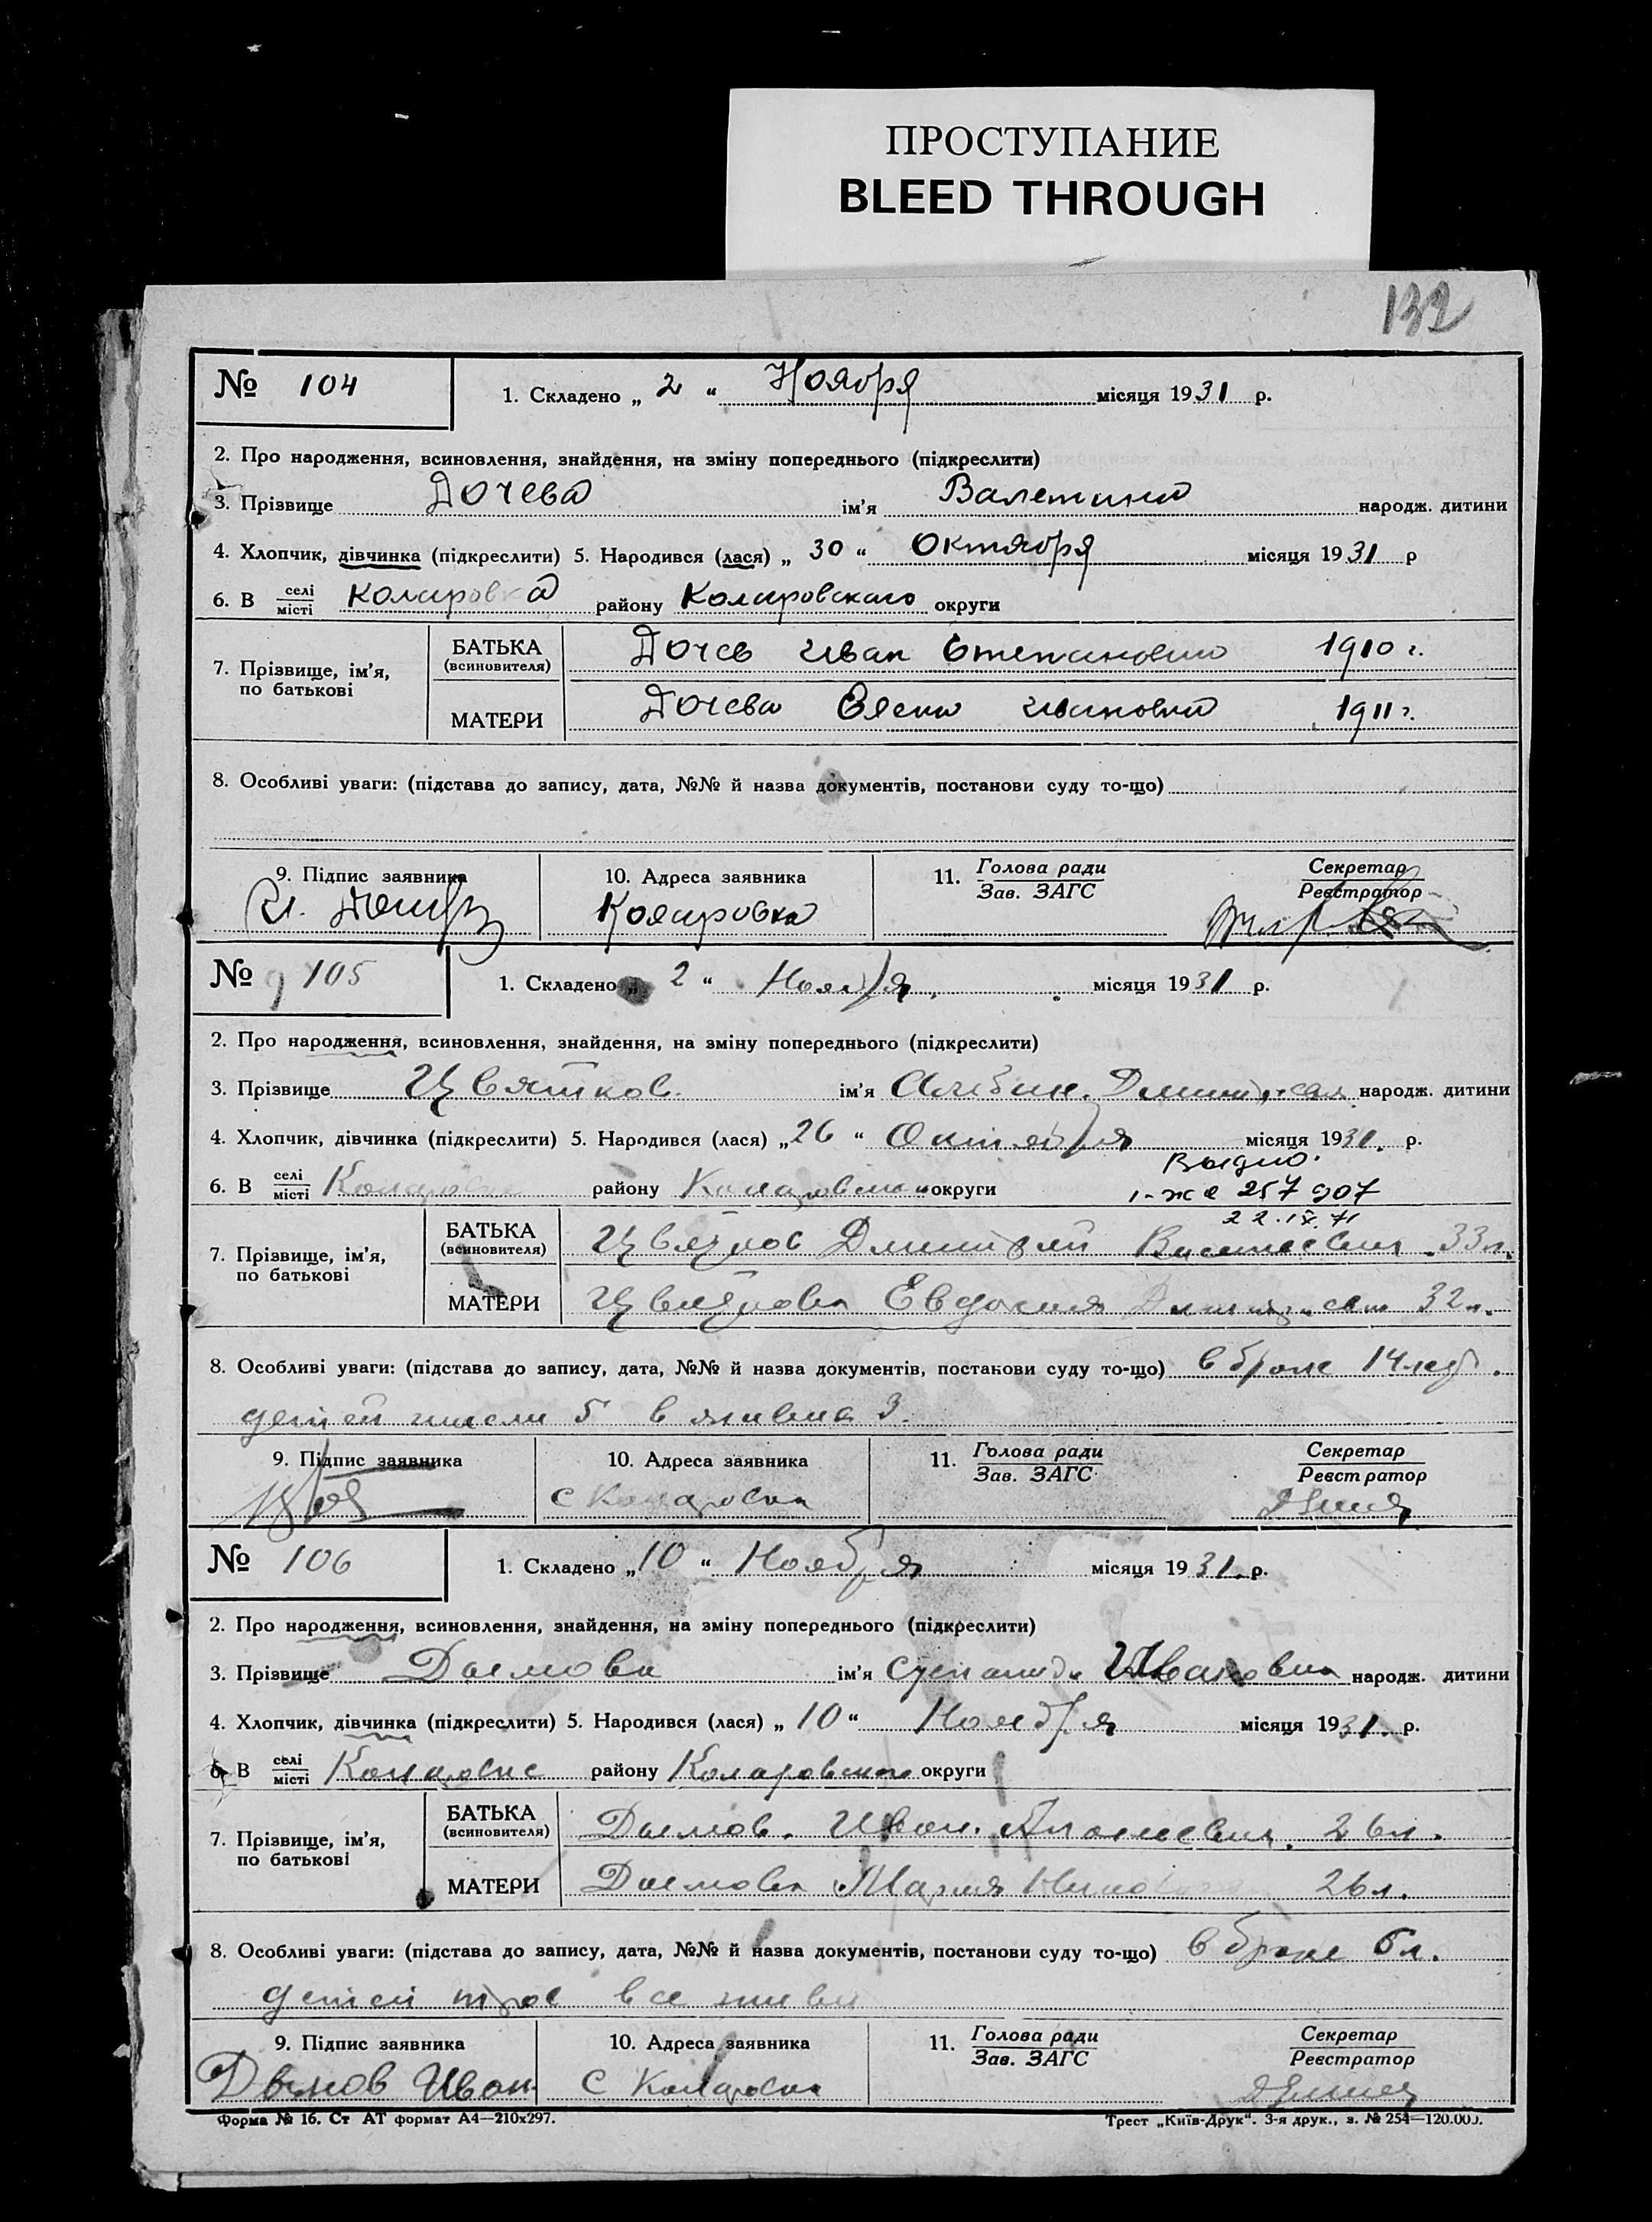 ПРОСТУПАНИЕ
BLEED THROUGH
132
№ 104 1. Складено „ 2 “ Ноября місяця 1931 р.
2. Про народження, всиновлення, знайдення, на зміну попереднього (підкреслити)
3. Прізвище Дочева ім’я Валентина народж. дитини
4. Хлопчик, дівчинка (підкреслити) 5. Народився (лася) „ 30 “ Октября місяця 1931 р
6. В селі місті Коларовка району Коларовскаго округи
7. Прізвище, ім’я, по батькові
БАТЬКА (всиновителя) Дочев Иван Степанович 1910 г.
МАТЕРИ Дочева Елена Ивановна 1911 г.
8. Особливі уваги: (підстава до запису, дата, №№ й назва документів, постанови суду то-що)
9. Підпис заявника 10. Адреса заявника 11. Голова ради Зав. ЗАГС Секретар Реєстратор
Коларовка
№ 105 1. Складено „ 2 “ Ноября місяця 1931 р.
2. Про народження, всиновлення, знайдення, на зміну попереднього (підкреслити)
3. Прізвище Цвятков ім’я народж. дитини
4. Хлопчик, дівчинка (підкреслити) 5. Народився (лася) „ 26 “ Октября місяця 1931. р.
Выдано.
6. В селі місті Коларовке району Коларовского округи 257907
22.IX.71
7. Прізвище, ім’я, по батькові
БАТЬКА (всиновителя) Цвятков Дмитрий 33 л.
МАТЕРИ Цвяткова Евдокия 32 л.
8. Особливі уваги: (підстава до запису, дата, №№ й назва документів, постанови суду то-що) в браке 14 лет.
детей имели 5 в живых 3.
9. Підпис заявника 10. Адреса заявника 11. Голова ради Зав. ЗАГС Секретар Реєстратор
с Коларовка
№ 106 1. Складено „ 10 “ Ноября місяця 1931. р.
2. Про народження, всиновлення, знайдення, на зміну попереднього (підкреслити)
3. Прізвище Дымова ім’я Степанида Ивановна народж. дитини
4. Хлопчик, дівчинка (підкреслити) 5. Народився (лася) „ 10 “ Ноября місяця 1931. р.
6. В селі місті Коларовке району Коларовского округи
7. Прізвище, ім’я, по батькові
БАТЬКА (всиновителя) Дымов. Иван. 26 л.
МАТЕРИ Дымова Мария 26 л.
8. Особливі уваги: (підстава до запису, дата, №№ й назва документів, постанови суду то-що) в браке 6 л.
детей трое все живы
9. Підпис заявника 10. Адреса заявника 11. Голова ради Зав. ЗАГС Секретар Реєстратор
Дымов Иван с Коларовка
Форма № 16. Ст АТ формат А4—210х297. Трест „Київ-Друк“. 3-я друк., з. № 254—120.000.